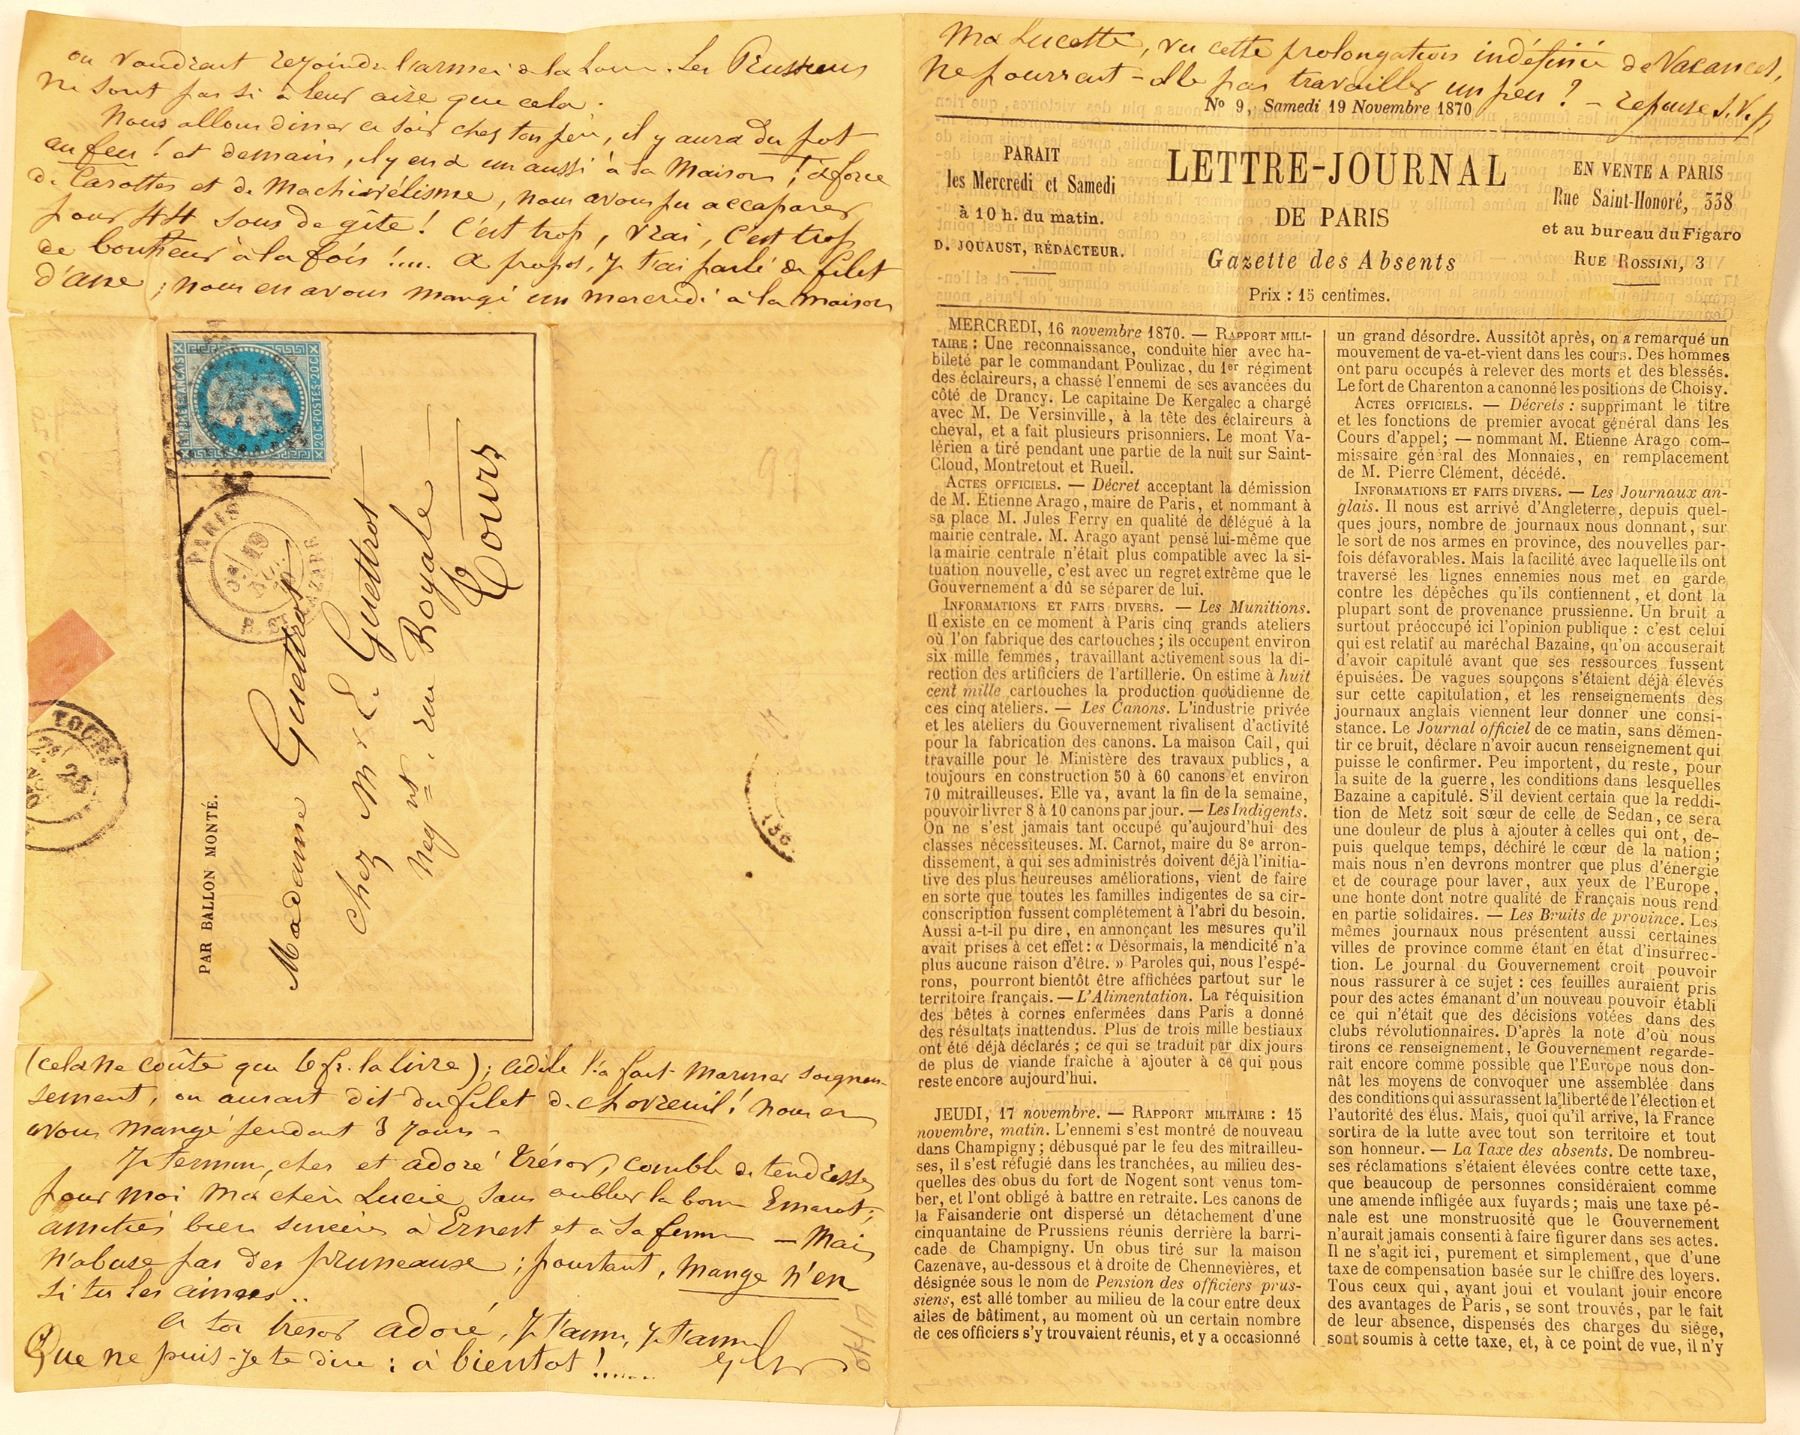 ou voudrait rejoindre l'armée de la Loire. Les Prussiens
ne sont pas si à leur aise que cela.
Nous allons diner ce soir chez ton père, il y aura du pot
au feu ! et demain, il y en a un aussi à la maison ; à force
de Carottes et de Machiavélisme, nous avons pu accaparer
pour 44 sous de gîte ! C'est trop, vrai, c'est trop
de bonheur à la fois !.... A propos, je t'ai parlé de filet
d'âne ; nous en avons mangé un mercredi à la maison
PAR BALLON MONTÉ.
EMPIRE FRANÇAIS
20 C POSTES 20 C
PARIS
19
NOV.
70
LAZARE
Madame Guettrot
chez Mr E. Guettrot
Negnt, rue Royale
Tours
TOURS
25
NOV.
70
(cela ne coûte que 6 fr. la livre) ; Adèle l'a fait mariner soigneu-
sement, on aurait dit du filet de chevreuil ! nous en
avons mangé pendant 3 jours -
Je termine, cher et adoré trésor, comble de tendresses
pour moi ma chère Lucie, sans oublier la bonne
amitiés bien sincères à Ernest et à sa femme - Mais
n'abuse pas des pruneaux ; pourtant, mange n'en
si tu les aimes..
A toi trésor adoré, je t'aime, je t'aime
Que ne puis-je te dire : à bientôt !......
Ma Lucette, vu cette prolongation indéfinie de Vacances,
ne pourrait-elle pas travailler un peu ? - reponse S.V.p
No 9, Samedi 19 Novembre 1870
PARAIT
les Mercredi et Samedi
à 10 h. du matin.
D. JOUAUST, RÉDACTEUR.
LETTRE-JOURNAL
DE PARIS
Gazette des Absents
Prix : 15 centimes.
EN VENTE A PARIS
Rue Saint-Honoré, 338
et au bureau du Figaro
RUE ROSSINI, 3
MERCREDI, 16 novembre 1870. — RAPPORT MILI-
TAIRE : Une reconnaissance, conduite hier avec ha-
bileté par le commandant Poulizac, du 1er régiment
des éclaireurs, a chassé l'ennemi de ses avancées du
côté de Drancy. Le capitaine De Kergalec a chargé
avec M. De Versinville, à la tête des éclaireurs à
cheval, et a fait plusieurs prisonniers. Le mont Va-
lérien a tiré pendant une partie de la nuit sur Saint-
Cloud, Montretout et Rueil.
ACTES OFFICIELS. — Décret acceptant la démission
de M. Etienne Arago, maire de Paris, et nommant à
sa place M. Jules Ferry en qualité de délégué à la
mairie centrale. M. Arago ayant pensé lui-même que
la mairie centrale n'était plus compatible avec la si-
tuation nouvelle, c'est avec un regret extrême que le
Gouvernement a dû se séparer de lui.
INFORMATIONS ET FAITS DIVERS. — Les Munitions.
Il existe en ce moment à Paris cinq grands ateliers
où l'on fabrique des cartouches ; ils occupent environ
six mille femmes, travaillant activement sous la di-
rection des artificiers de l'artillerie. On estime à huit
cent mille cartouches la production quotidienne de
ces cinq ateliers. — Les Canons. L'industrie privée
et les ateliers du Gouvernement rivalisent d'activité
pour la fabrication des canons. La maison Cail, qui
travaille pour le Ministère des travaux publics, a
toujours en construction 50 à 60 canons et environ
70 mitrailleuses. Elle va, avant la fin de la semaine,
pouvoir livrer 8 à 10 canons par jour. — Les Indigents.
On ne s'est jamais tant occupé qu'aujourd'hui des
classes nécessiteuses. M. Carnot, maire du 8e arron-
dissement, à qui ses administrés doivent déjà l'initia-
tive des plus heureuses améliorations, vient de faire
en sorte que toutes les familles indigentes de sa cir-
conscription fussent complétement à l'abri du besoin.
Aussi a-t-il pu dire, en annonçant les mesures qu'il
avait prises à cet effet : « Désormais, la mendicité n'a
plus aucune raison d'être. » Paroles qui, nous l'espé-
rons, pourront bientôt être affichées partout sur le
territoire français. — L'Alimentation. La réquisition
des bêtes à cornes enfermées dans Paris a donné
des résultats inattendus. Plus de trois mille bestiaux
ont été déjà déclarés ; ce qui se traduit par dix jours
de plus de viande fraîche à ajouter à ce qui nous
reste encore aujourd'hui.
JEUDI, 17 novembre. — RAPPORT MILITAIRE : 15
novembre, matin. L'ennemi s'est montré de nouveau
dans Champigny ; débusqué par le feu des mitrailleu-
ses, il s'est réfugié dans les tranchées, au milieu des-
quelles des obus du fort de Nogent sont venus tom-
ber, et l'ont obligé à battre en retraite. Les canons de
la Faisanderie ont dispersé un détachement d'une
cinquantaine de Prussiens réunis derrière la barri-
cade de Champigny. Un obus tiré sur la maison
Cazenave, au-dessous et à droite de Chennevières, et
désignée sous le nom de Pension des officiers prus-
siens, est allé tomber au milieu de la cour entre deux
ailes de bâtiment, au moment où un certain nombre
de ces officiers s'y trouvaient réunis, et y a occasionné
un grand désordre. Aussitôt après, on a remarqué un
mouvement de va-et-vient dans les cours. Des hommes
ont paru occupés à relever des morts et des blessés.
Le fort de Charenton a canonné les positions de Choisy.
ACTES OFFICIELS. — Décrets : supprimant le titre
et les fonctions de premier avocat général dans les
Cours d'appel ; — nommant M. Etienne Arago com-
missaire général des Monnaies, en remplacement
de M. Pierre Clément, décédé.
INFORMATIONS ET FAITS DIVERS. — Les Journaux an-
glais. Il nous est arrivé d'Angleterre, depuis quel-
ques jours, nombre de journaux nous donnant, sur
le sort de nos armes en province, des nouvelles par-
fois défavorables. Mais la facilité avec laquelle ils ont
traversé les lignes ennemies nous met en garde
contre les dépêches qu'ils contiennent, et dont la
plupart sont de provenance prussienne. Un bruit a
surtout préoccupé ici l'opinion publique : c'est celui
qui est relatif au maréchal Bazaine, qu'on accuserait
d'avoir capitulé avant que ses ressources fussent
épuisées. De vagues soupçons s'étaient déjà élevés
sur cette capitulation, et les renseignements des
journaux anglais viennent leur donner une consi-
stance. Le Journal officiel de ce matin, sans démen-
tir ce bruit, déclare n'avoir aucun renseignement qui
puisse le confirmer. Peu important, du reste, pour
la suite de la guerre, les conditions dans lesquelles
Bazaine a capitulé. S'il devient certain que la reddi-
tion de Metz soit sœur de celle de Sedan, ce sera
une douleur de plus à ajouter à celles qui ont, de-
puis quelque temps, déchiré le cœur de la nation ;
mais nous n'en devrons montrer que plus d'énergie
et de courage pour laver, aux yeux de l'Europe,
une honte dont notre qualité de Français nous rend
en partie solidaires. — Les Bruits de province. Les
mêmes journaux nous présentent aussi certaines
villes de province comme étant en état d'insurrec-
tion. Le journal du Gouvernement croit pouvoir
nous rassurer à ce sujet : ces feuilles auraient pris
pour des actes émanant d'un nouveau pouvoir établi
ce qui n'était que des décisions votées dans des
clubs révolutionnaires. D'après la note d'où nous
tirons ce renseignement, le Gouvernement regarde-
rait encore comme possible que l'Europe nous don-
nât les moyens de convoquer une assemblée dans
des conditions qui assurassent la liberté de l'élection et
l'autorité des élus. Mais, quoi qu'il arrive, la France
sortira de la lutte avec tout son territoire et tout
son honneur. — La Taxe des absents. De nombreu-
ses réclamations s'étaient élevées contre cette taxe,
que beaucoup de personnes considéraient comme
une amende infligée aux fuyards ; mais une taxe pé-
nale est une monstruosité que le Gouvernement
n'aurait jamais consenti à faire figurer dans ses actes.
Il ne s'agit ici, purement et simplement, que d'une
taxe de compensation basée sur le chiffre des loyers.
Tous ceux qui, ayant joui et voulant jouir encore
des avantages de Paris, se sont trouvés, par le fait
de leur absence, dispensés des charges du siége,
sont soumis à cette taxe, et, à ce point de vue, il n'y